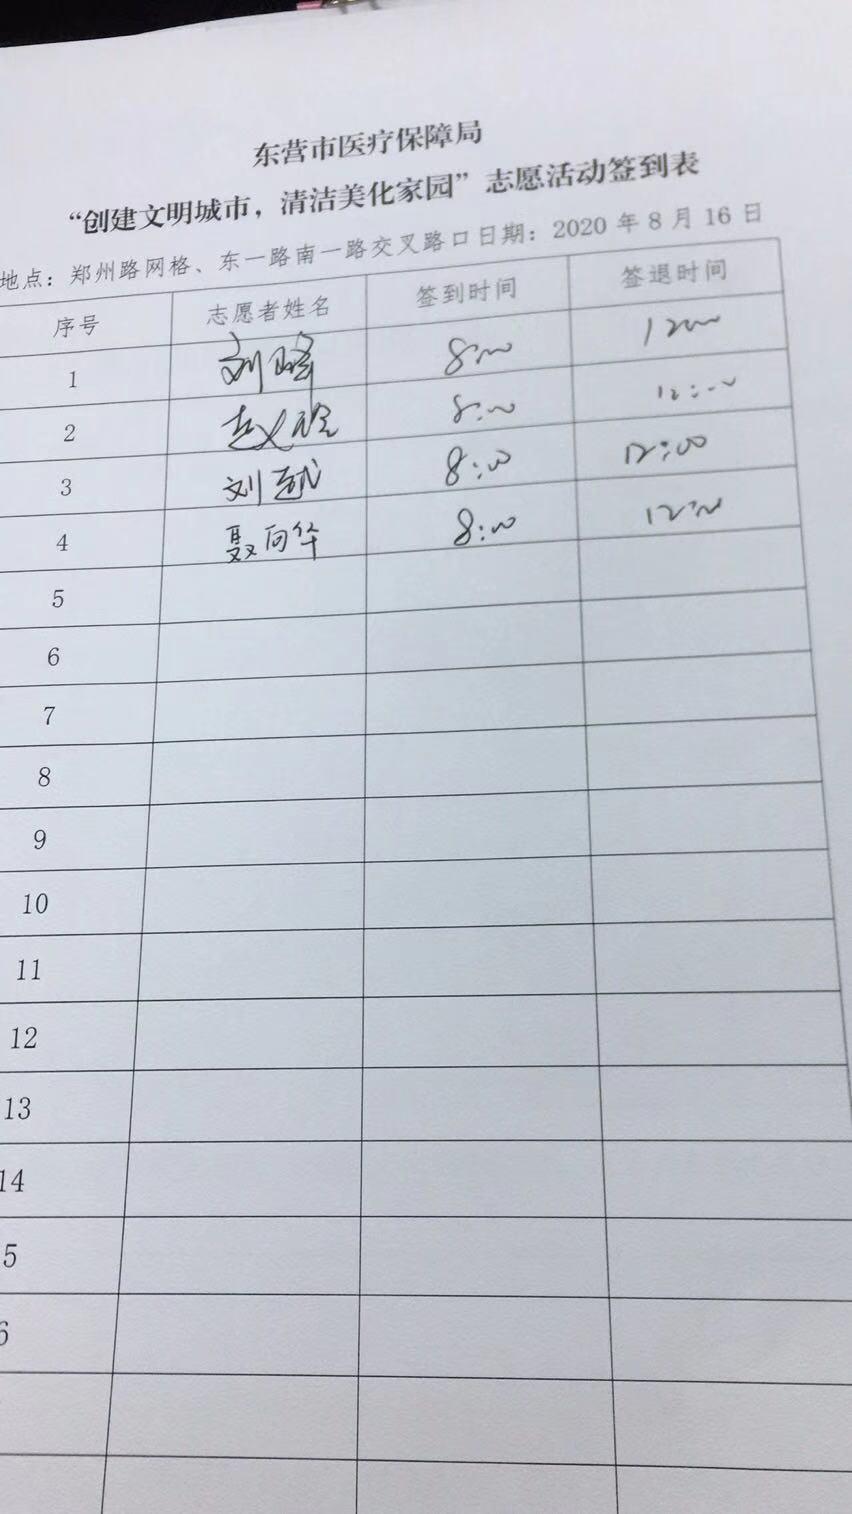 东营市医疗保障局
“创建文明城市，清洁美化家园”志愿活动签到表
地点：郑州路网格、东一路南一路交叉路口日期：2020 年 8 月 16 日
序号 志愿者姓名 签到时间 签退时间
1 刘 8:00 12:00
2 赵 8:00 12:00
3 刘 8:00 12:00
4 聂向华 8:00 12:00
5
6
7
8
9
10
11
12
13
14
5
6